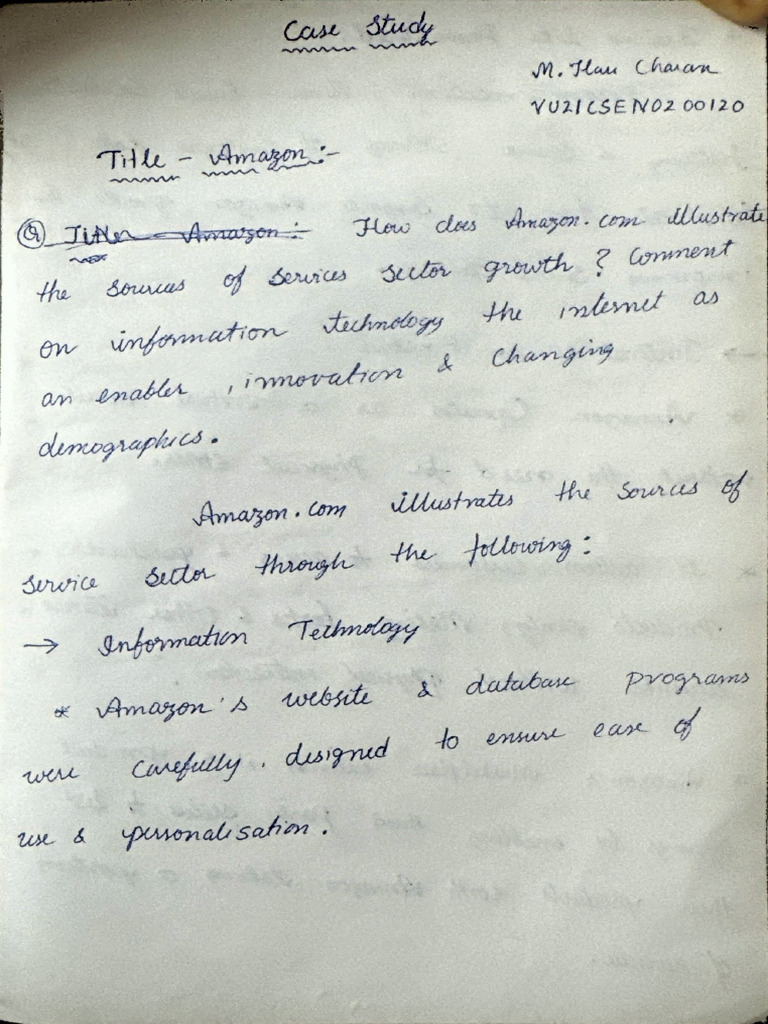 Case Study
M. Hari Charan
VU21CSEN0200120
Title - Amazon :-
Q Title - Amazon :- How does Amazon.com illustrate
the sources of services sector growth ? Comment
on information technology the internet as
an enabler , innovation & changing
demographics.
Amazon.com illustrates the sources of
service sector through the following :
→ Information Technology
* Amazon's website & database programs
were carefully designed to ensure ease of
use & personalisation.